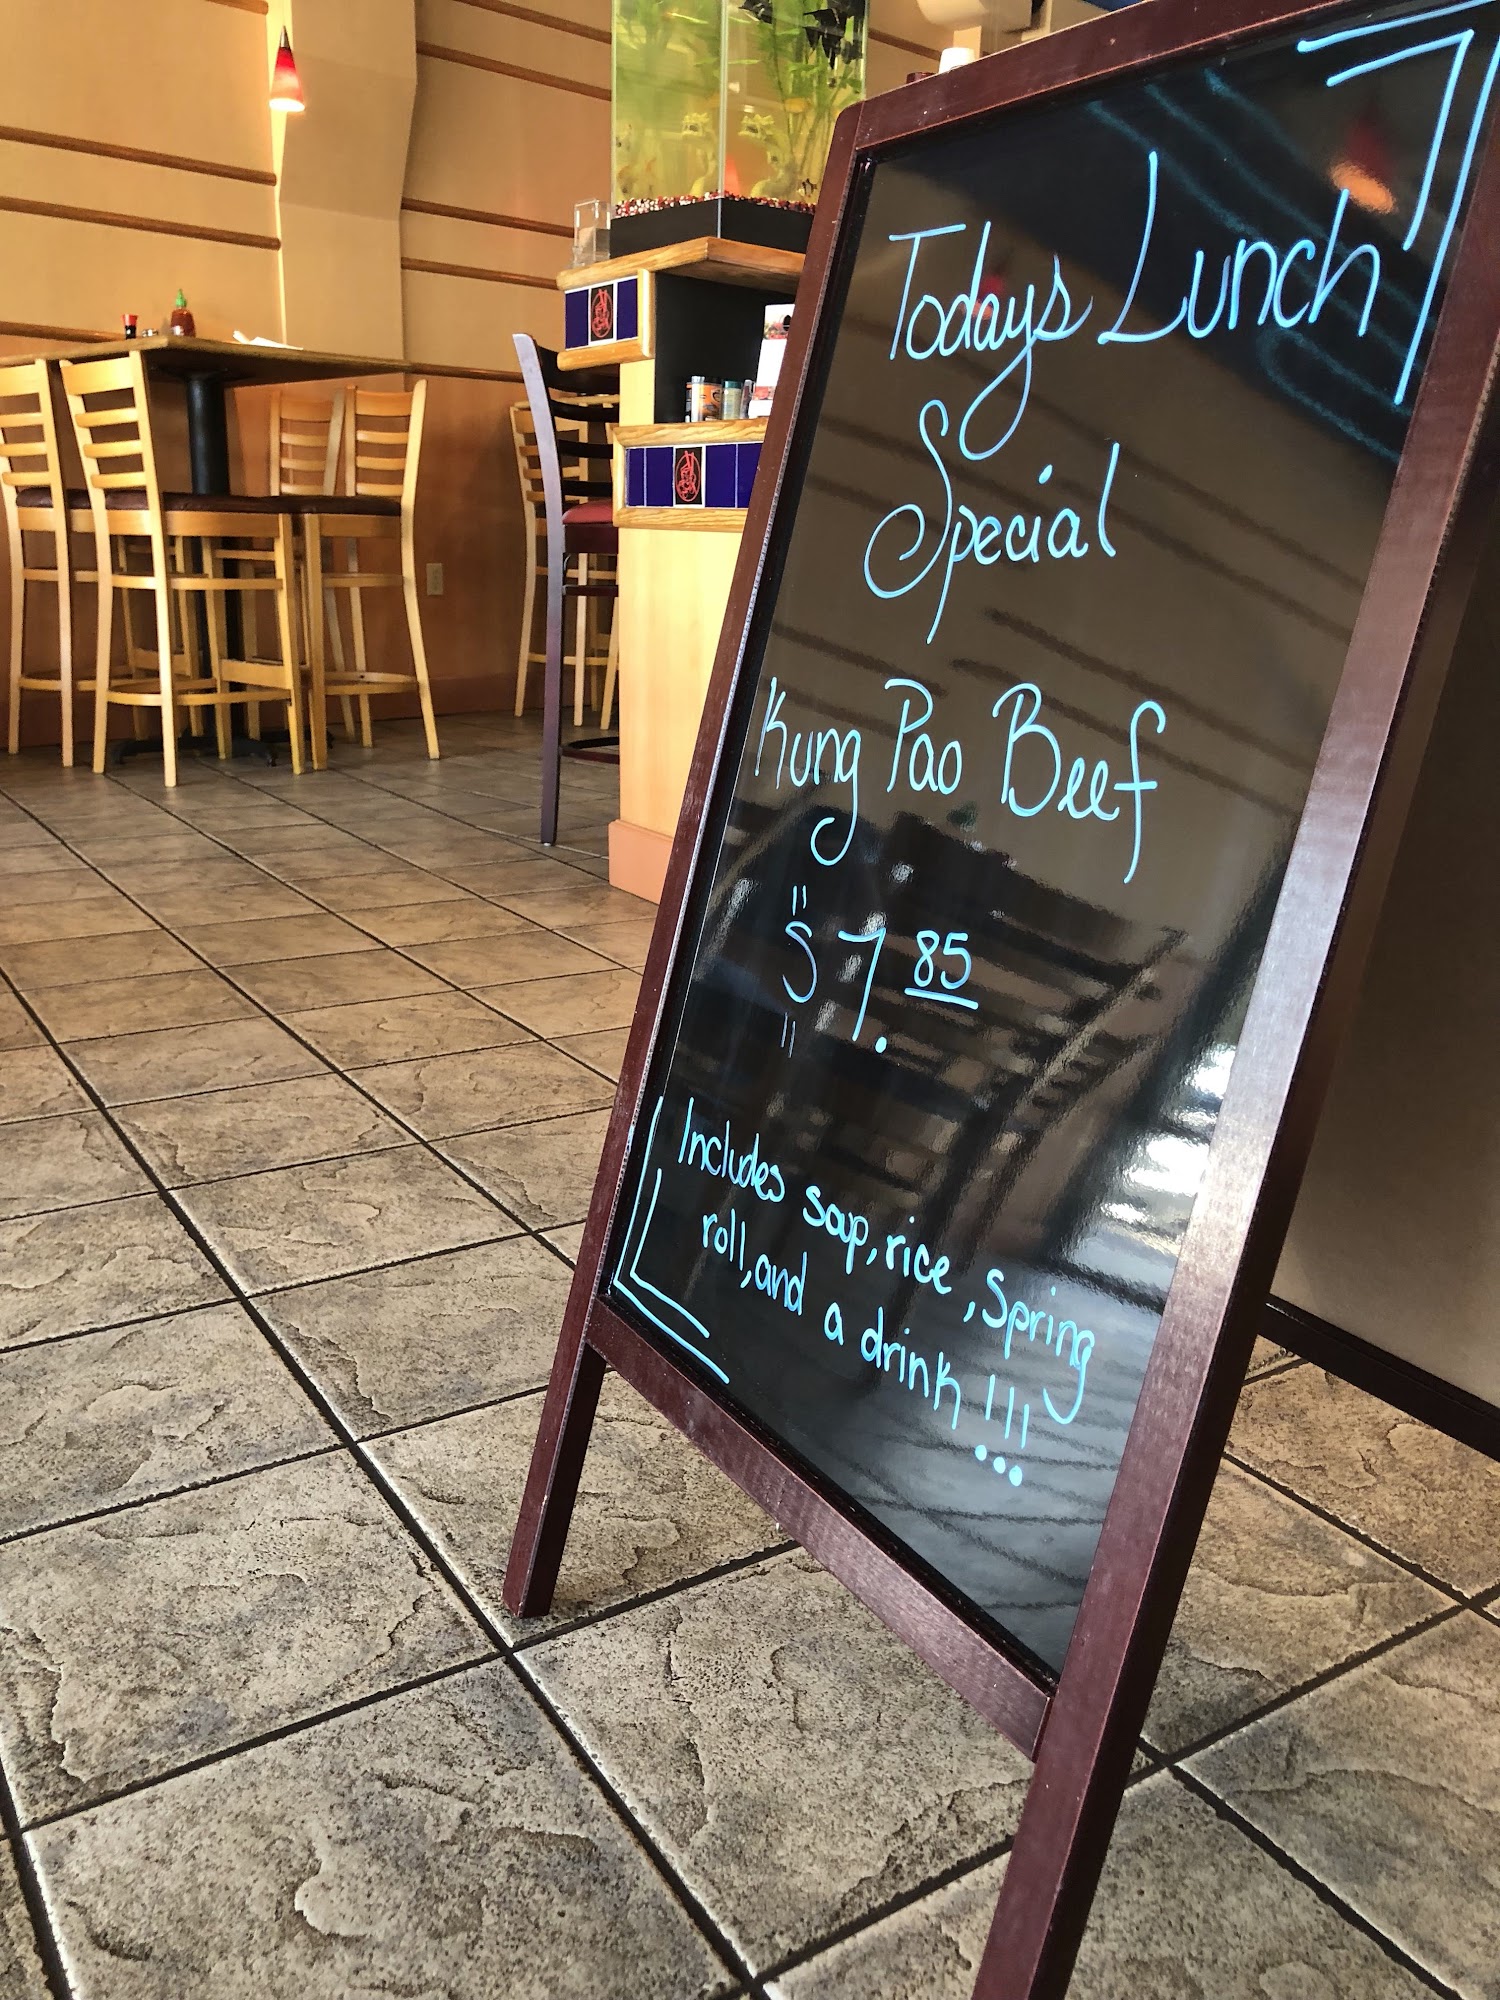 Todays Lunch
Special
Kung Pao Beef
$ 7.85
Includes soup, rice, Spring
roll, and a drink!!!